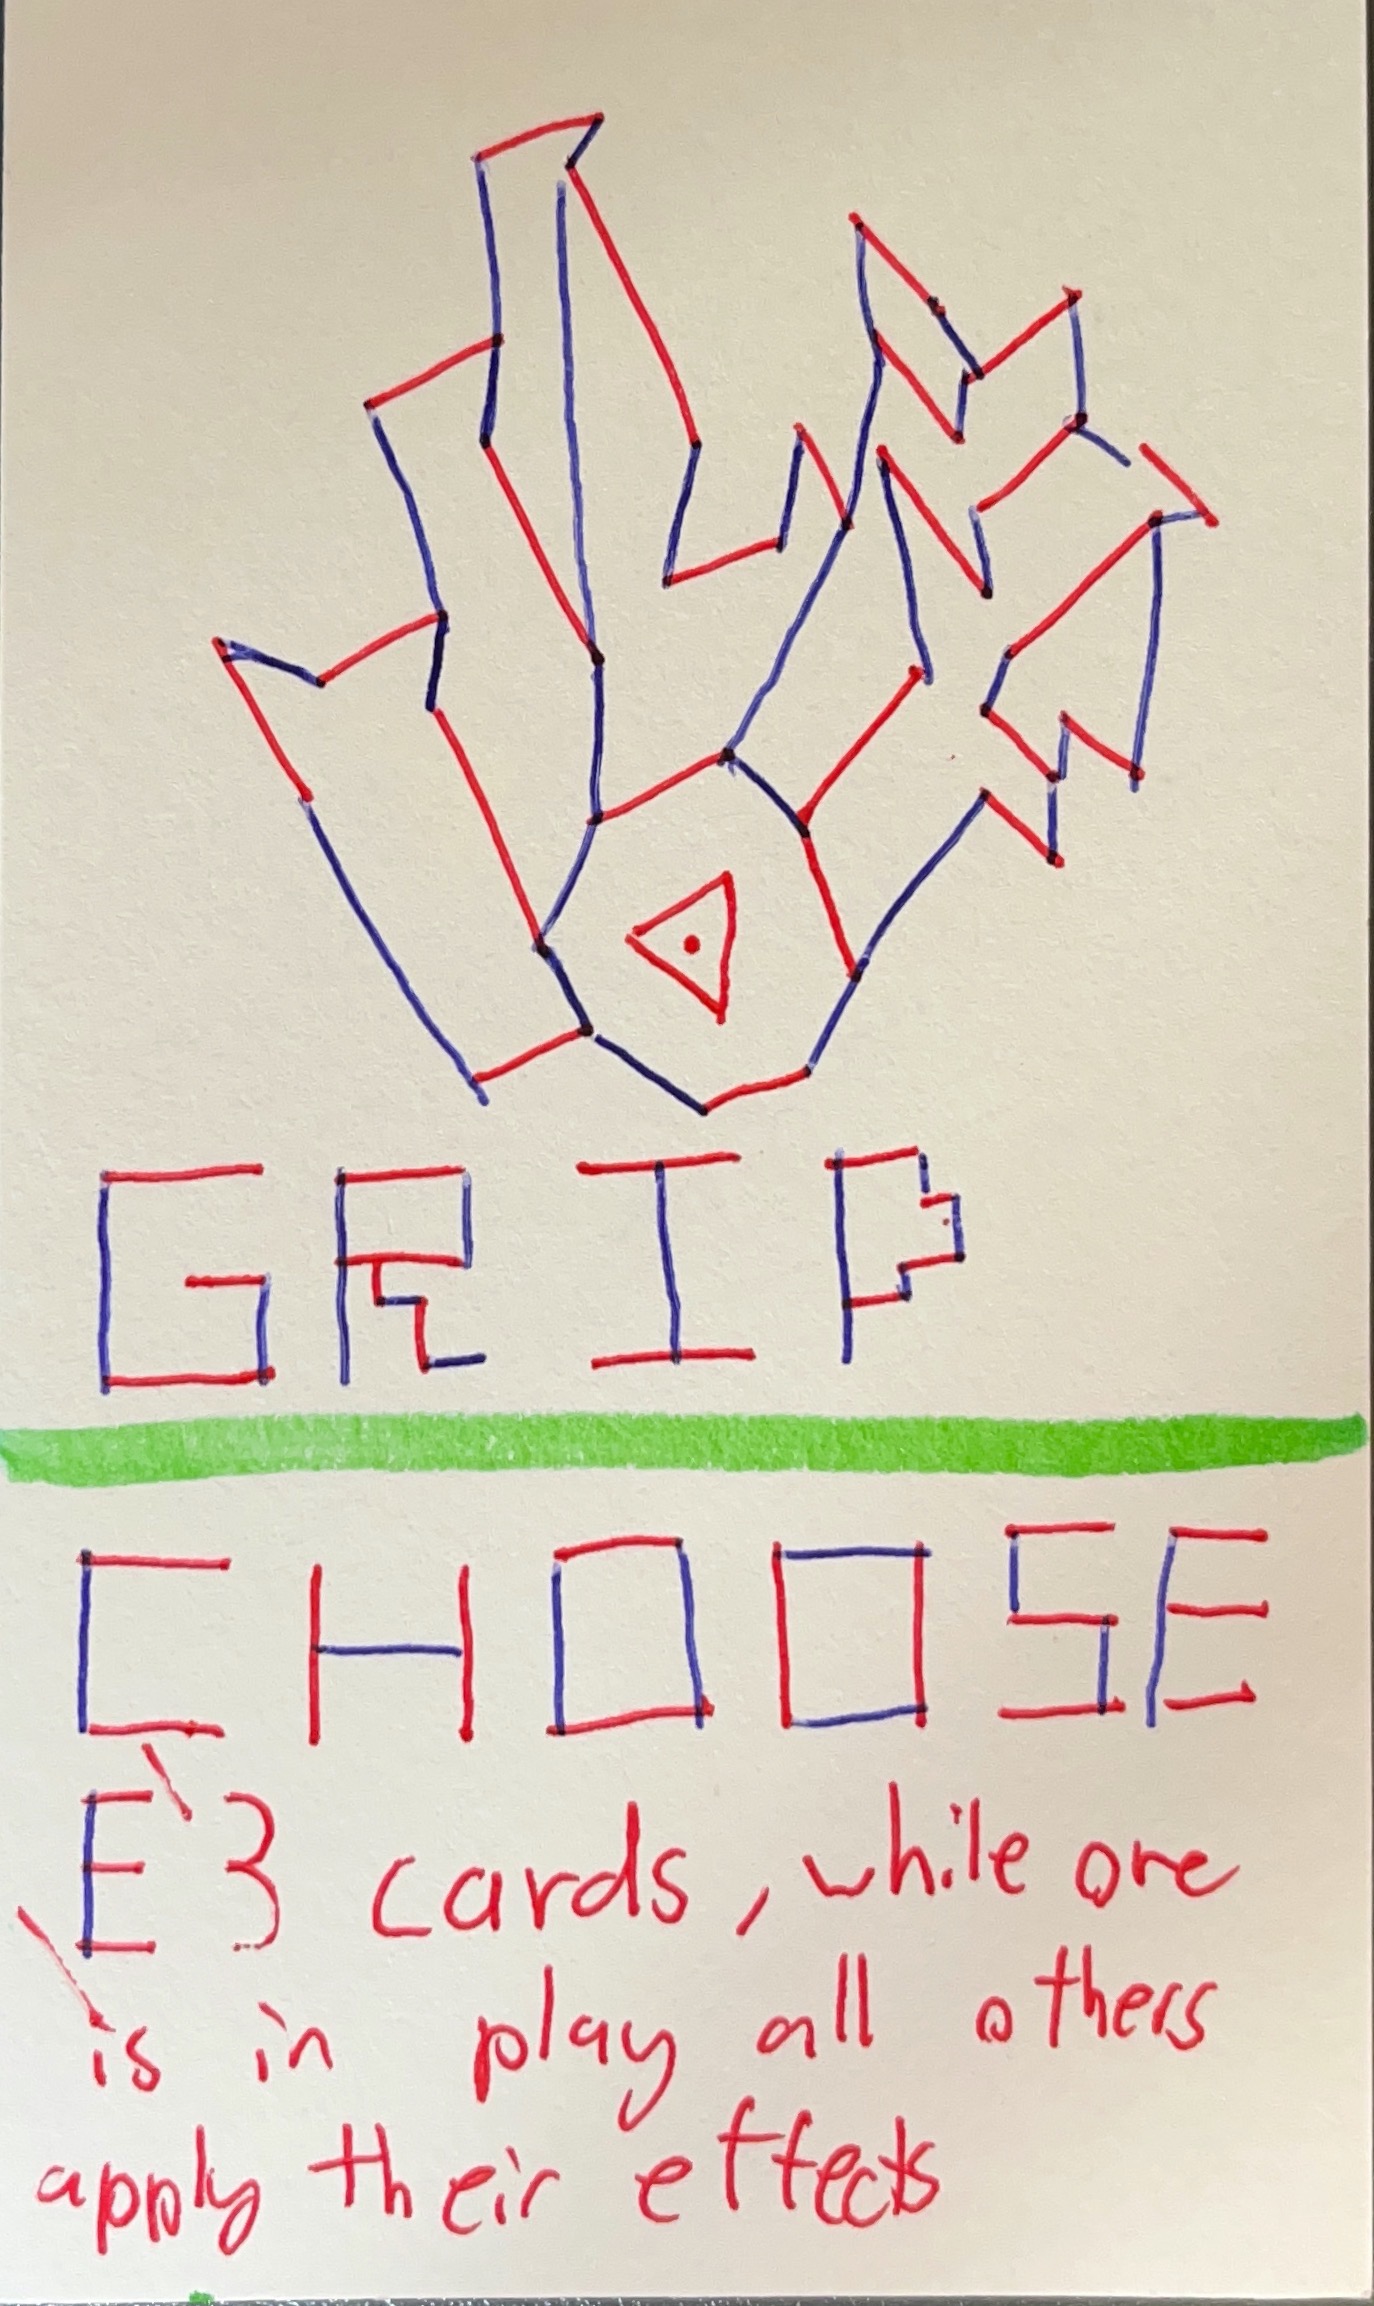 GRIP
CHOOSE
E 3 cards, while one
is in play all others
apply their effects